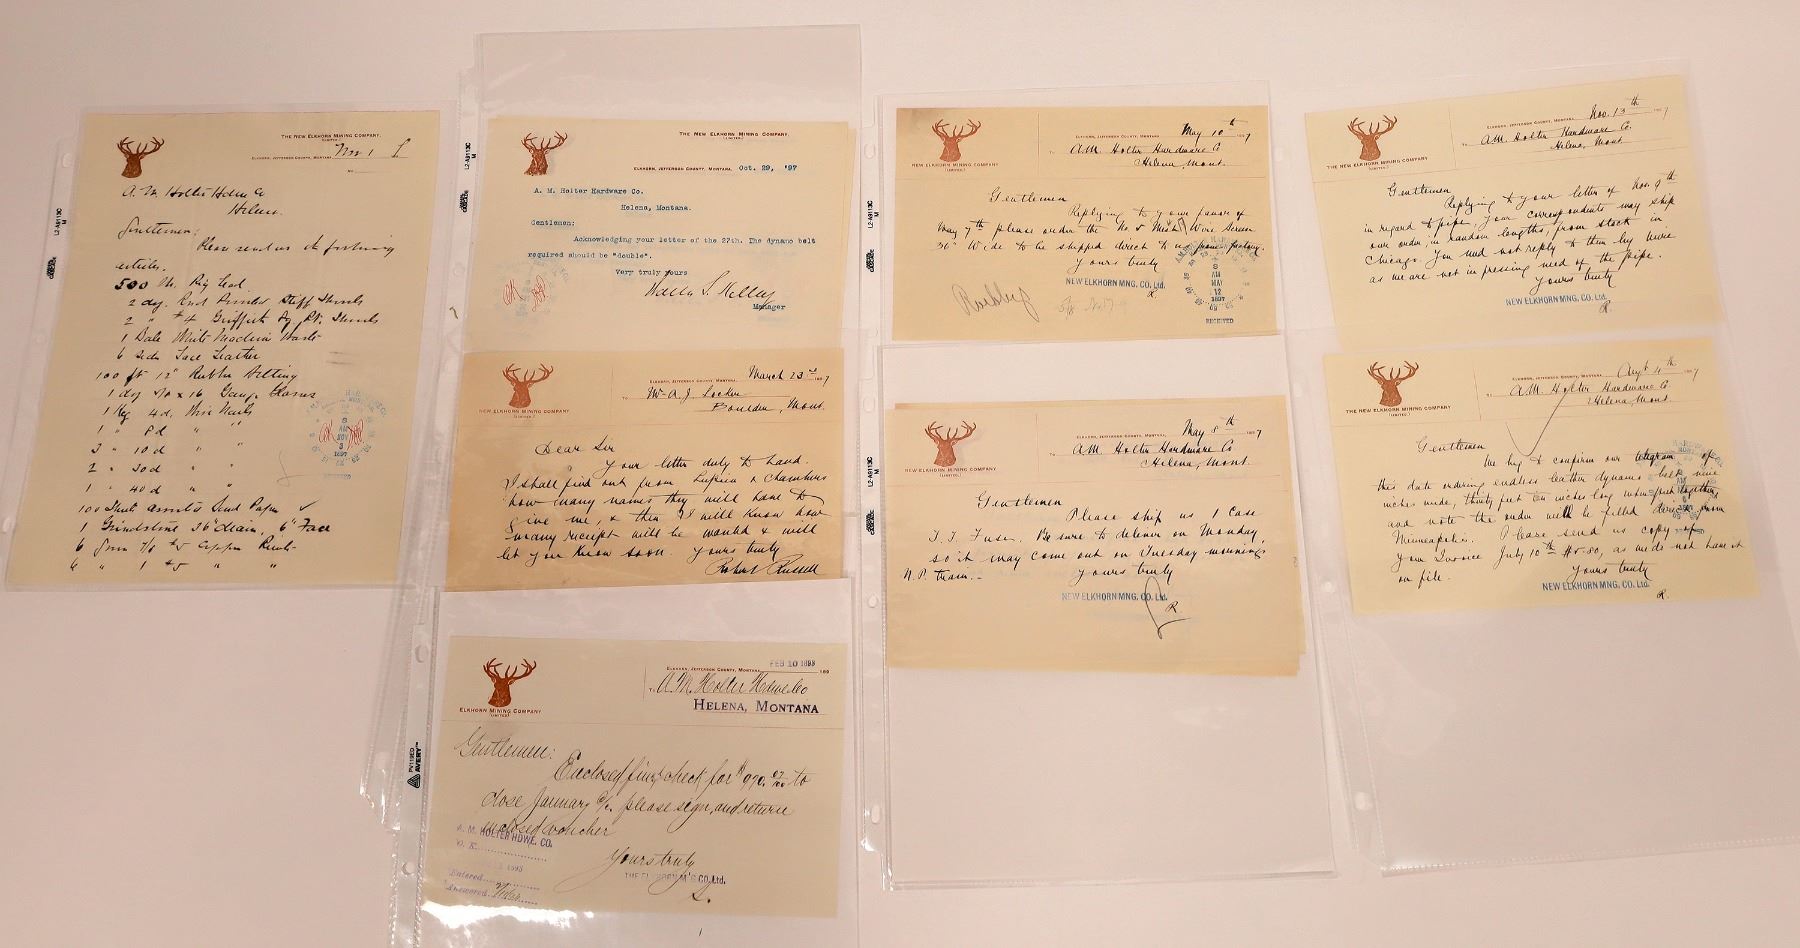 THE NEW ELKHORN MINING COMPANY.
(LIMITED)
ELKHORN, JEFFERSON COUNTY, MONTANA
Nov 1
A. M. Holter Hdw Co
Helena.
Gentlemen:
Please send us the following
articles.
500 lbs. Pig Lead
2 doz. Rnd Pointed Stiff Shovels
2 " #4 Griffith Sq. Pt. Shovels
1 Bale White Machine Waste
6 Sides Lace Leather
100 ft 12" Rubber Belting
1 doz 5/8 x 16 Gauge Glasses
1 Keg 4 d. Wire Nails
1 " 8 d " "
3 " 10 d " "
2 " 30 d " "
1 " 40 d " "
100 Sheets assorted Sand Paper
1 Grindstone 36" diam, 6" Face
6 Gross 7/8 #5 Copper Rivets
6 " 1 #5 " "
8
AM
NOV
3
1897
THE NEW ELKHORN MINING COMPANY.
(LIMITED)
ELKHORN, JEFFERSON COUNTY, MONTANA, Oct. 29, '97
A. M. Holter Hardware Co.
Helena, Montana.
Gentlemen:
Acknowledging your letter of the 27th. The dynamo belt
required should be "double".
Very truly yours
Walter S. Kelley
Manager
ELKHORN, JEFFERSON COUNTY, MONTANA, March 23rd 1897
NEW ELKHORN MINING COMPANY
(LIMITED)
To Mr A. J. Locker
Boulder, Mont.
Dear Sir
Your letter duly to hand.
I shall find out from & Chambers
how many names they will have to
give me, & then I will know how
many receipt will be would & will
let you know soon. Yours truly
Robert Russell
ELKHORN, JEFFERSON COUNTY, MONTANA FEB 10 1893 189
ELKHORN MINING COMPANY
(LIMITED)
To A. M. Holter Hdwe Co
HELENA, MONTANA
Gentlemen:
Enclosed find check for $970.07/100 to
close January a/c. please sign and return
enclosed voucher
A. M. HOLTER HDWE. CO.
O. K.
1893
Entered
Answered
Yours truly
THE ELKHORN M'G CO. Ltd.
S.
ELKHORN, JEFFERSON COUNTY, MONTANA May 10th 1897
NEW ELKHORN MINING COMPANY
(LIMITED)
To A.M. Holter Hardware Co
Helena, Mont.
Gentlemen
Replying to your favor of
May 7th please order the No. 8 Mesh Wire Screen
36" Wide to be shipped direct to us from factory.
Yours truly
NEW ELKHORN MNG. CO. Ltd.
R.
Roebling
8
AM
MAY
12
1897
RECEIVED
ELKHORN, JEFFERSON COUNTY, MONTANA May 8th 1897
NEW ELKHORN MINING COMPANY
(LIMITED)
To A.M. Holter Hardware Co
Helena, Mont.
Gentlemen
Please ship us 1 case
T. T. Fuse. Be sure to deliver on Monday,
so it may come out on Tuesday mornings
N.P. train.
Yours truly
NEW ELKHORN MNG. CO. Ltd.
R.
ELKHORN, JEFFERSON COUNTY, MONTANA, Nov. 13th 1897
NEW ELKHORN MINING COMPANY
(LIMITED)
To A.M. Holter Hardware Co.
Helena, Mont
Gentlemen
Replying to your letter of Nov. 9th
in regard to pipe, your correspondents may ship
our order, in random lengths, from stock in
Chicago. You need not reply to them by wire
as we are not in pressing need of the pipe.
Yours truly
NEW ELKHORN MNG. CO. Ltd.
R.
ELKHORN, JEFFERSON COUNTY, MONTANA, Augt 4th 1897
THE NEW ELKHORN MINING COMPANY
(LIMITED)
To A.M. Holter Hardware Co
Helena, Mont.
Gentlemen
We beg to confirm our telegram of
this date ordering endless leather dynamo belt nine
inches wide, thirty feet ten inches long when put together
and note the order will be filled direct from
Minneapolis. Please send us copy of
your Invoice July 10th $5.80, as we do not have it
on file.
Yours truly
NEW ELKHORN MNG. CO. Ltd.
R.
L2-A9113C
M
L2-A9113C
M
L2-A9113C
M
L2-A9113C
M
PV119ED
AVERY™